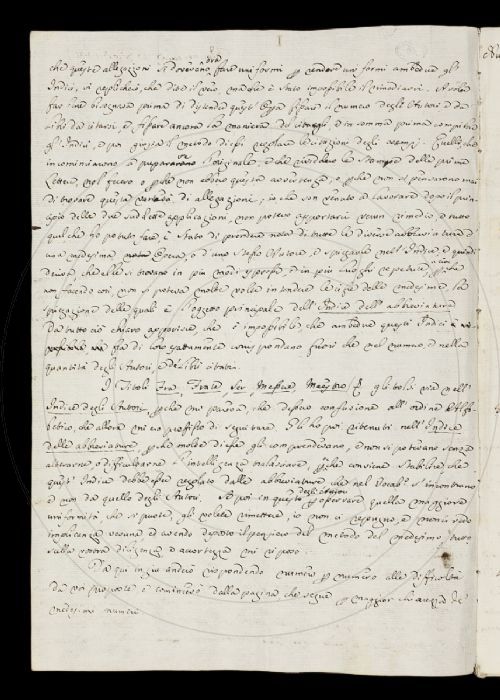 che queste allegazioni si dovevano ora fare uniformi p render uniformi ambedue gl'
Indici, vi replicherò, che dite il vero, ma che è stato impossibile il rimediarvi. A voler
far ciò bisognava prima di distender quest' Opera fissare il numero degli Autori da
citarsi, e fissare ancora la maniera di citargli, ed in somma prima compire
gl' Indici, e poi giusta il metodo di essi regolare le citazioni degli esempj. Quelli, che
incominciarono a preparare l'originale, e che videro le Stampe delle prime
Lettere, nol fecero o pche non ebbero questa avvertenza, o pche non si pensarono mai
di trovare questa varietà di allegazione; io che son venuto a lavorare dopo il prin-
cipio delle due suddette applicazioni, non potevo apportarvi verun rimedio, e tutto
quel che ho potuto fare è stato di prender nota di tutte le diverse abbreviature d'
una medesima Opera, o d'uno stesso Autore, e spiegarle nell' Indice, e quindi
deriva, che alle si trovano in più modi espresse, e in più luoghi repetute, pche
non facendo così, non si poteva molte volte intendere le cifre delle medesime, la
spiegazione delle quali è l'oggetto principale dell' Indice dell' abbreviature
da tutto ciò chiaro apparisce, che è impossibile, che ambedue questi Indici
fra di loro esattamente corrispondano fuori che nel numero, e nella
quantità degli Autori, e de' libri citati.
I Titoli Fra, Frate, Ser, Messer, Maestro, &c. gli tolsi via nell'
Indice degli Autori, pche mi pareva, che desser confusione all' ordine Alfa-
betico, che allora mi era prefisso di seguitare. Gli ho poi ritenuti nell' Indice
delle abbreviature, pche molte di esse gli comprendevano, e non si potevano senza
alterarne, o difficultarne l'intelligenza tralasciare, pche conviene stabilire, che
quest' Indice debba esser regolato dalle abbreviature che nel Vocab. s'incontrano
e non da quello degli Autori. Se poi in questo degli Autori p osservare quella maggiore
uniformità, che si puote, gli volete rimettere, io non ci repugno, e
ripugnanza veruna ed avendo deposto il pensiero del metodo del medesimo, tutto
sulla vostra diligenza, ed avvertenza mi riposo.
Da qui in giù anderò rispondendo numero p numero alle difficoltà
da voi proposte, e comincerò dalla pagina che segue p maggior chiarezza de'
medesimi numeri